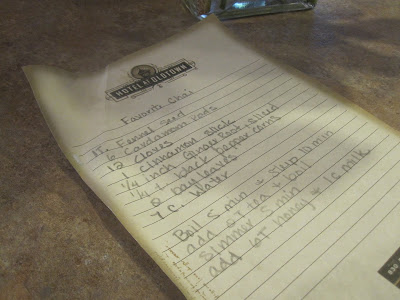 HOTEL AT OLDTOWN
Favorite Chai
1 t. Fennel Seed
6 Cardamom Pods
12 Cloves
1 cinnamon stick
1/4 inch Ginger Root sliced
1/4 t black peppercorns
2 bay leaves
7 C. Water
Boil 5 min & steep 10 min
add 2T tea & boil
Simmer 5 min
add 6T honey & 1c milk